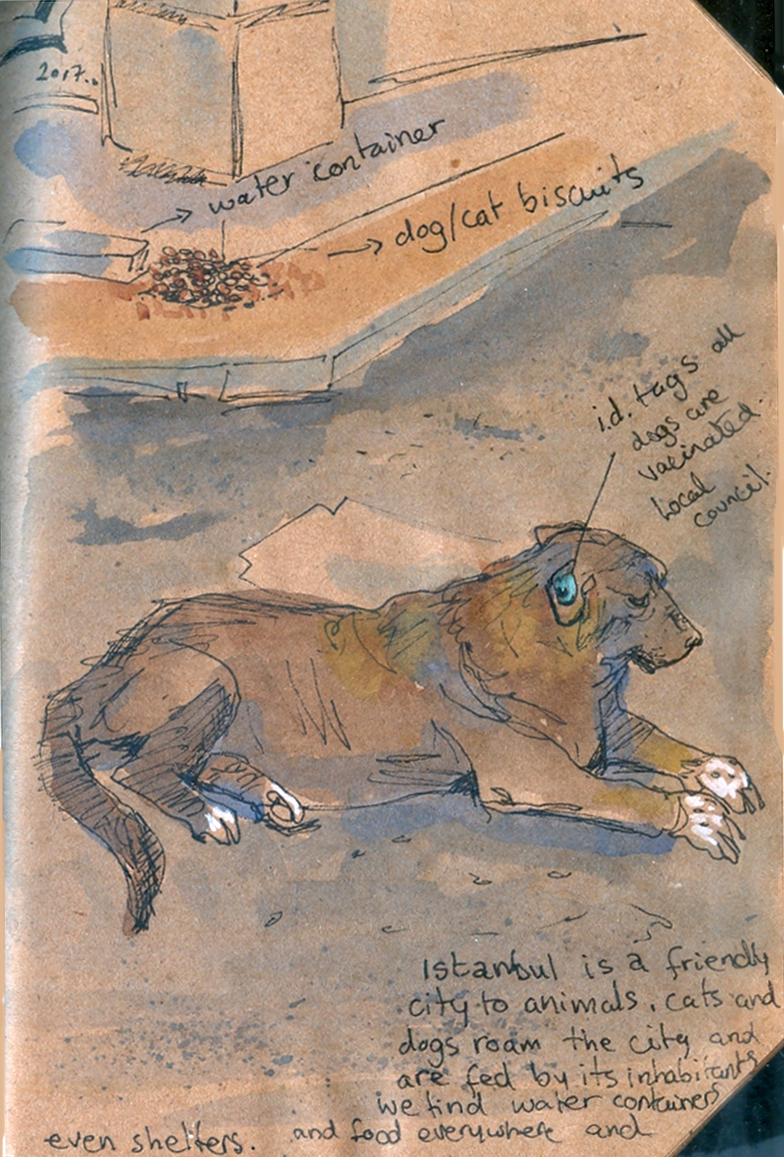 2017..
water container
dog/cat biscuits
i.d. tags all
dogs are
vacinated.
Local
council.
Istanbul is a friendly
city to animals. cats and
dogs roam the city and
are fed by its inhabitants
we find water containers
and food everywhere and
even shelters.